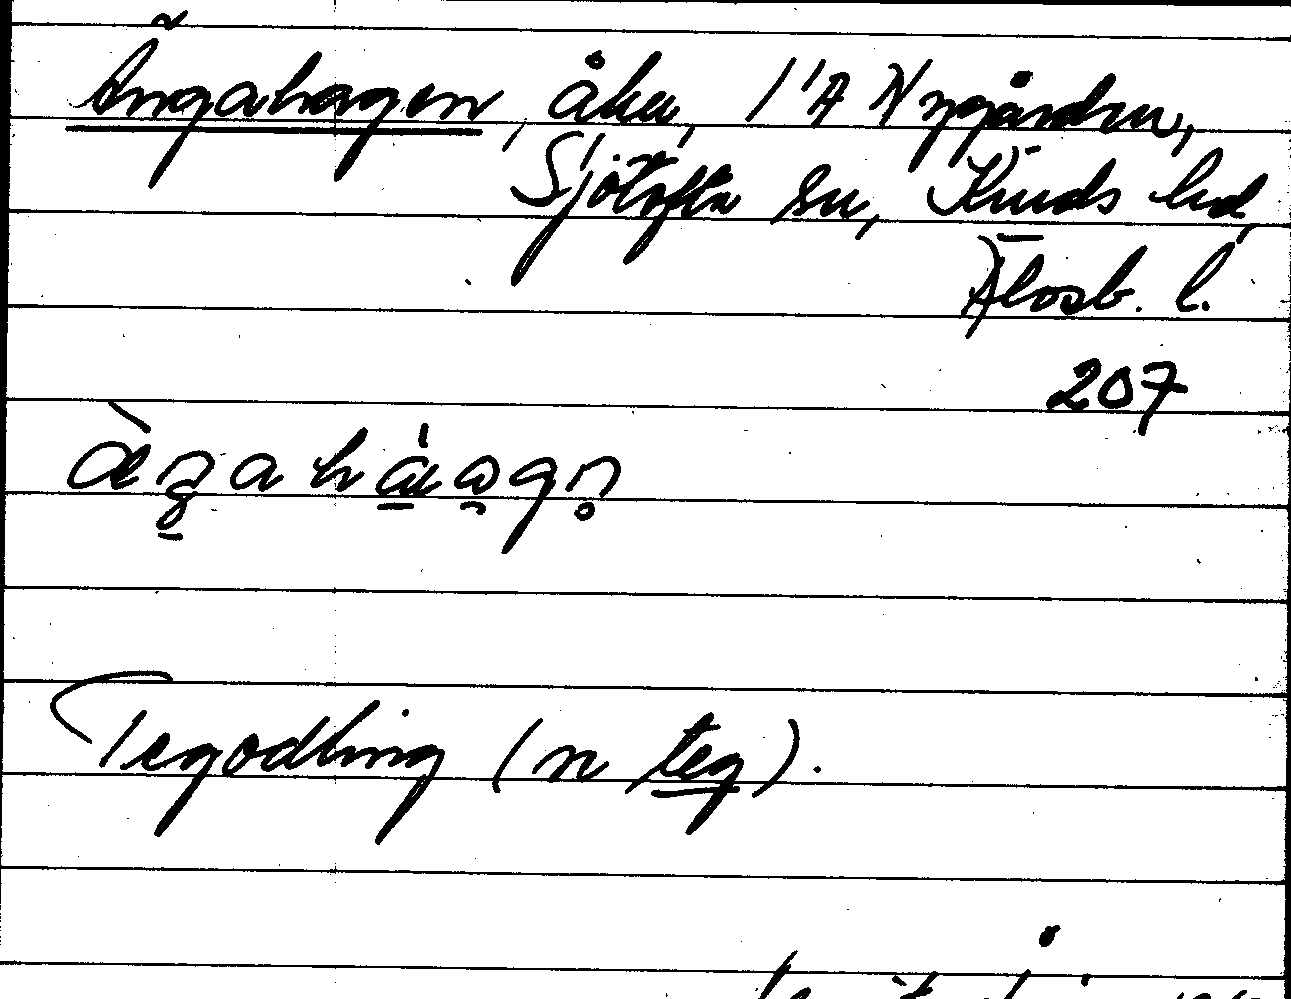 Ängahagen, åker, 1'A Nygården,
Sjötofta sn, Kinds hd,
Älvsb. l.
207
Tegodling (n teg).